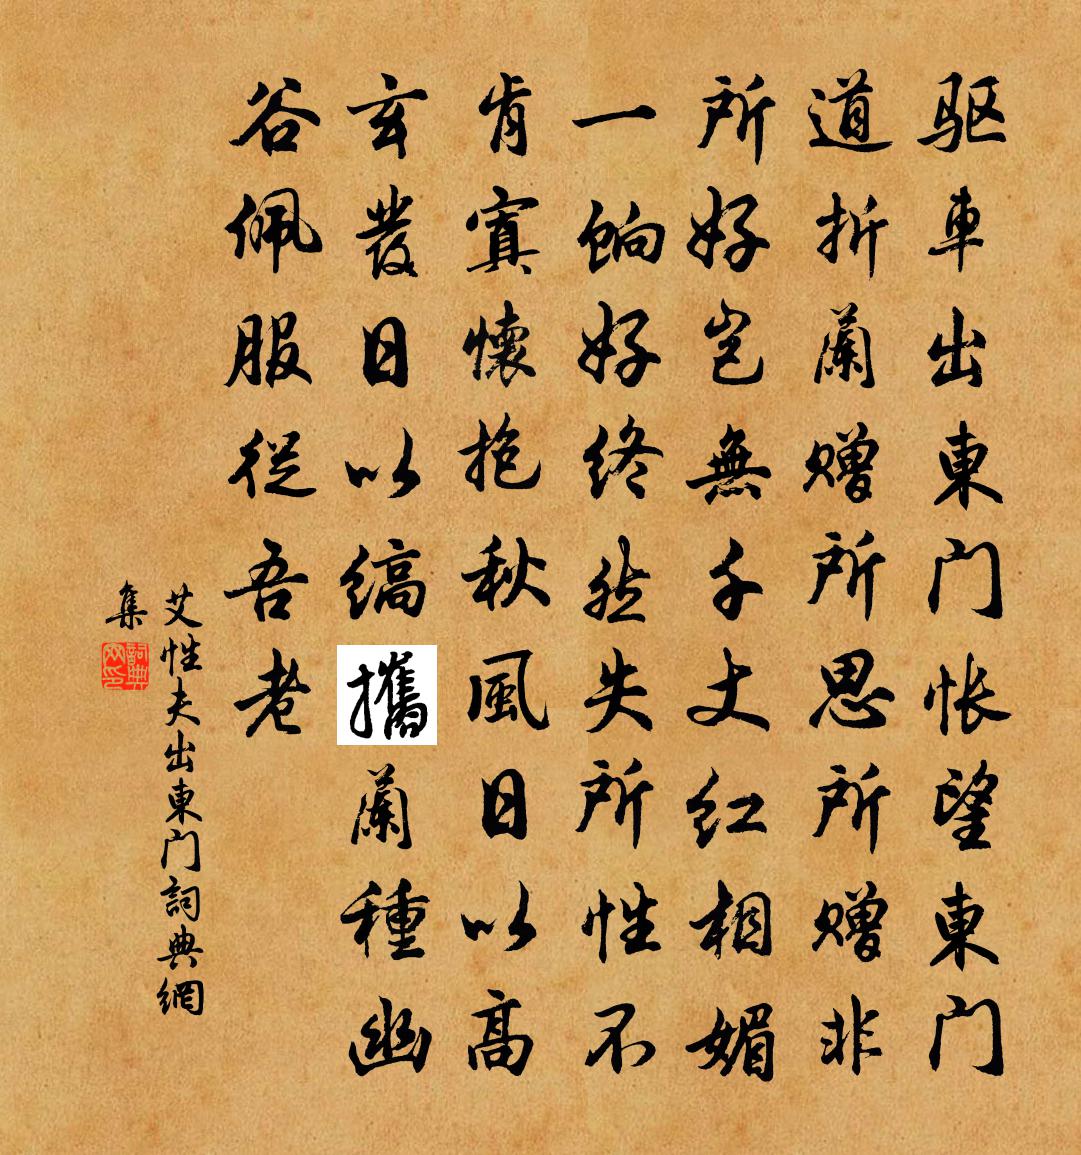 驱車出東门怅望東门
道折蘭赠所思所赠非
所好岂無千丈红相媚
一饷好终然失所性不
肯寘懷抱秋風日以高
玄发日以缟攜蘭種幽
谷佩服従吾老
艾性夫出東门詞典網
集
詞典网印